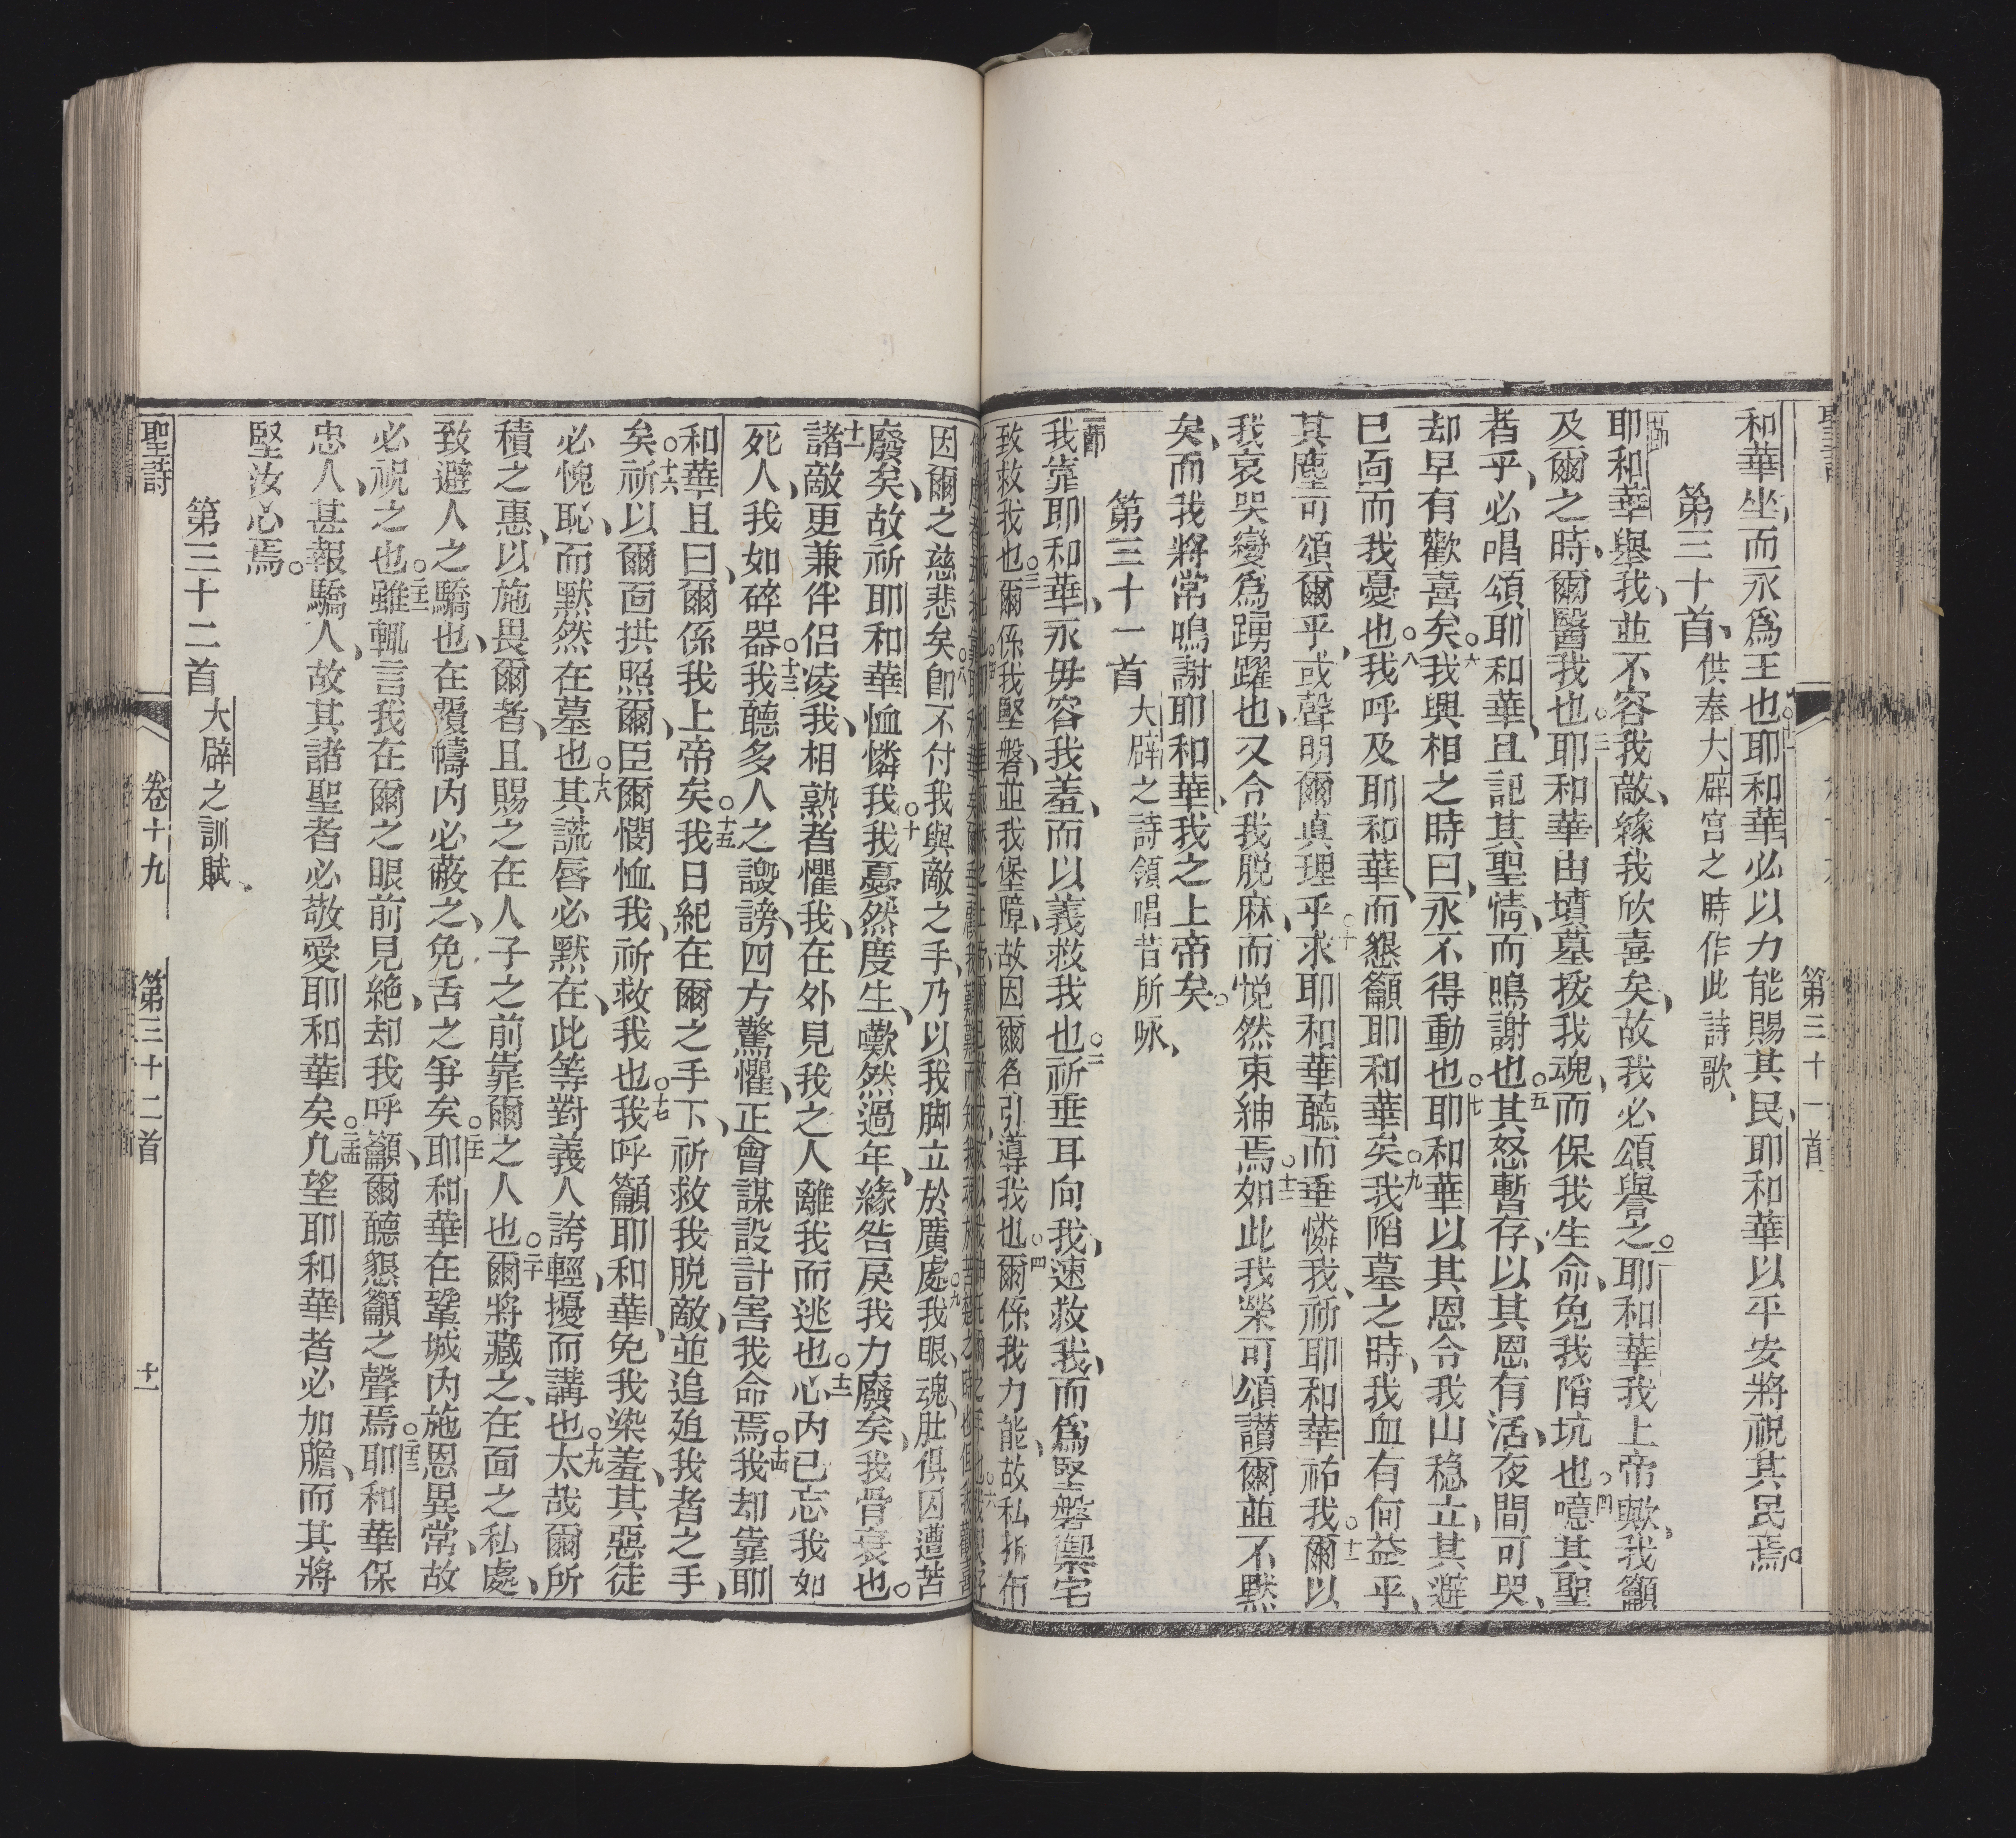 第三十一首
和華坐、而永爲王也。十一耶和華必以力能賜其民、耶和華以平安將祝其民焉。
第三十首、供奉大辟宮之時作此詩歌、
耶和華舉我、並不容我敵、緣我欣喜矣、故我必頌譽之。二耶和華我上帝歟、我籲
及爾之時、爾醫我也。三耶和華由墳墓拔我魂、而保我生命、免我陷坑也。四噫其聖
者乎、必唱頌耶和華、且記其聖情、而鳴謝也。五其怒暫存、以其恩有活、夜間可哭、
却早有歡喜矣。六我興相之時曰、永不得動也。七耶和華以其恩令我山稳立、其避
已面而我憂也。八我呼及耶和華、而懇籲耶和華矣。九我陷墓之時、我血有何益乎、
其塵可頌爾乎、或聲明爾真理乎。十求耶和華聽而垂憐我、祈耶和華祐我。十一爾以
我哀哭變爲踴躍也、又令我脱麻、而悦然束紳焉。十二如此我榮可頌讃爾並不默
矣、而我將常鳴謝耶和華、我之上帝矣。
第三十一首 大辟之詩領唱昔所咏、
我靠耶和華、永毋容我羞、而以義救我也。二祈垂耳向我、速救我、而爲堅磐禦宅
致救我也。三爾係我堅磐、並我堡障、故因爾名引導我也。四爾係我力能、故私拆布
因爾之慈悲矣。八卽不付我與敵之手、乃以我脚立於廣處。九我眼、魂、肚俱因遭苦
廢矣、故祈耶和華恤憐我。十我憂然度生、嘆然過年、緣咎戾我力廢矣、我骨衰也。
十一諸敵更兼伴侣凌我、相熟者懼我、在外見我之人離我而逃也。十二心内已忘我如
死人、我如碎器。十三我聽多人之譭謗、四方驚懼、正會謀設計害我命焉。十四我却靠耶
和華且曰、爾係我上帝矣。十五我日紀在爾之手下、祈救我脱敵、並追廹我者之手、
矣。十六祈以爾面拱照爾臣、爾憫恤我、祈救我也。十七我呼籲耶和華、免我染羞、其惡徒
必愧恥、而默然在墓也。十八其謊唇必默在、此等對義人誇輕、擾而講也。十九太哉爾所
積之惠、以施畏爾者、且賜之在人子之前靠爾之人也。二十爾將藏之、在面之私處、
致避人之驕也、在覆幬内必蔽之、免舌之爭矣。二十一耶和華在鞏城内施恩異常、故
必祝之也。二十二雖輒言我在爾之眼前見絶、却我呼籲、爾聽懇籲之聲焉。二十三耶和華保
忠人、甚報驕人、故其諸聖者必敬愛耶和華矣。二十四凢望耶和華者必加膽、而其將
堅汝心焉。
第三十二首 大辟之訓賦、
聖詩 卷十九 第三十二首 十一